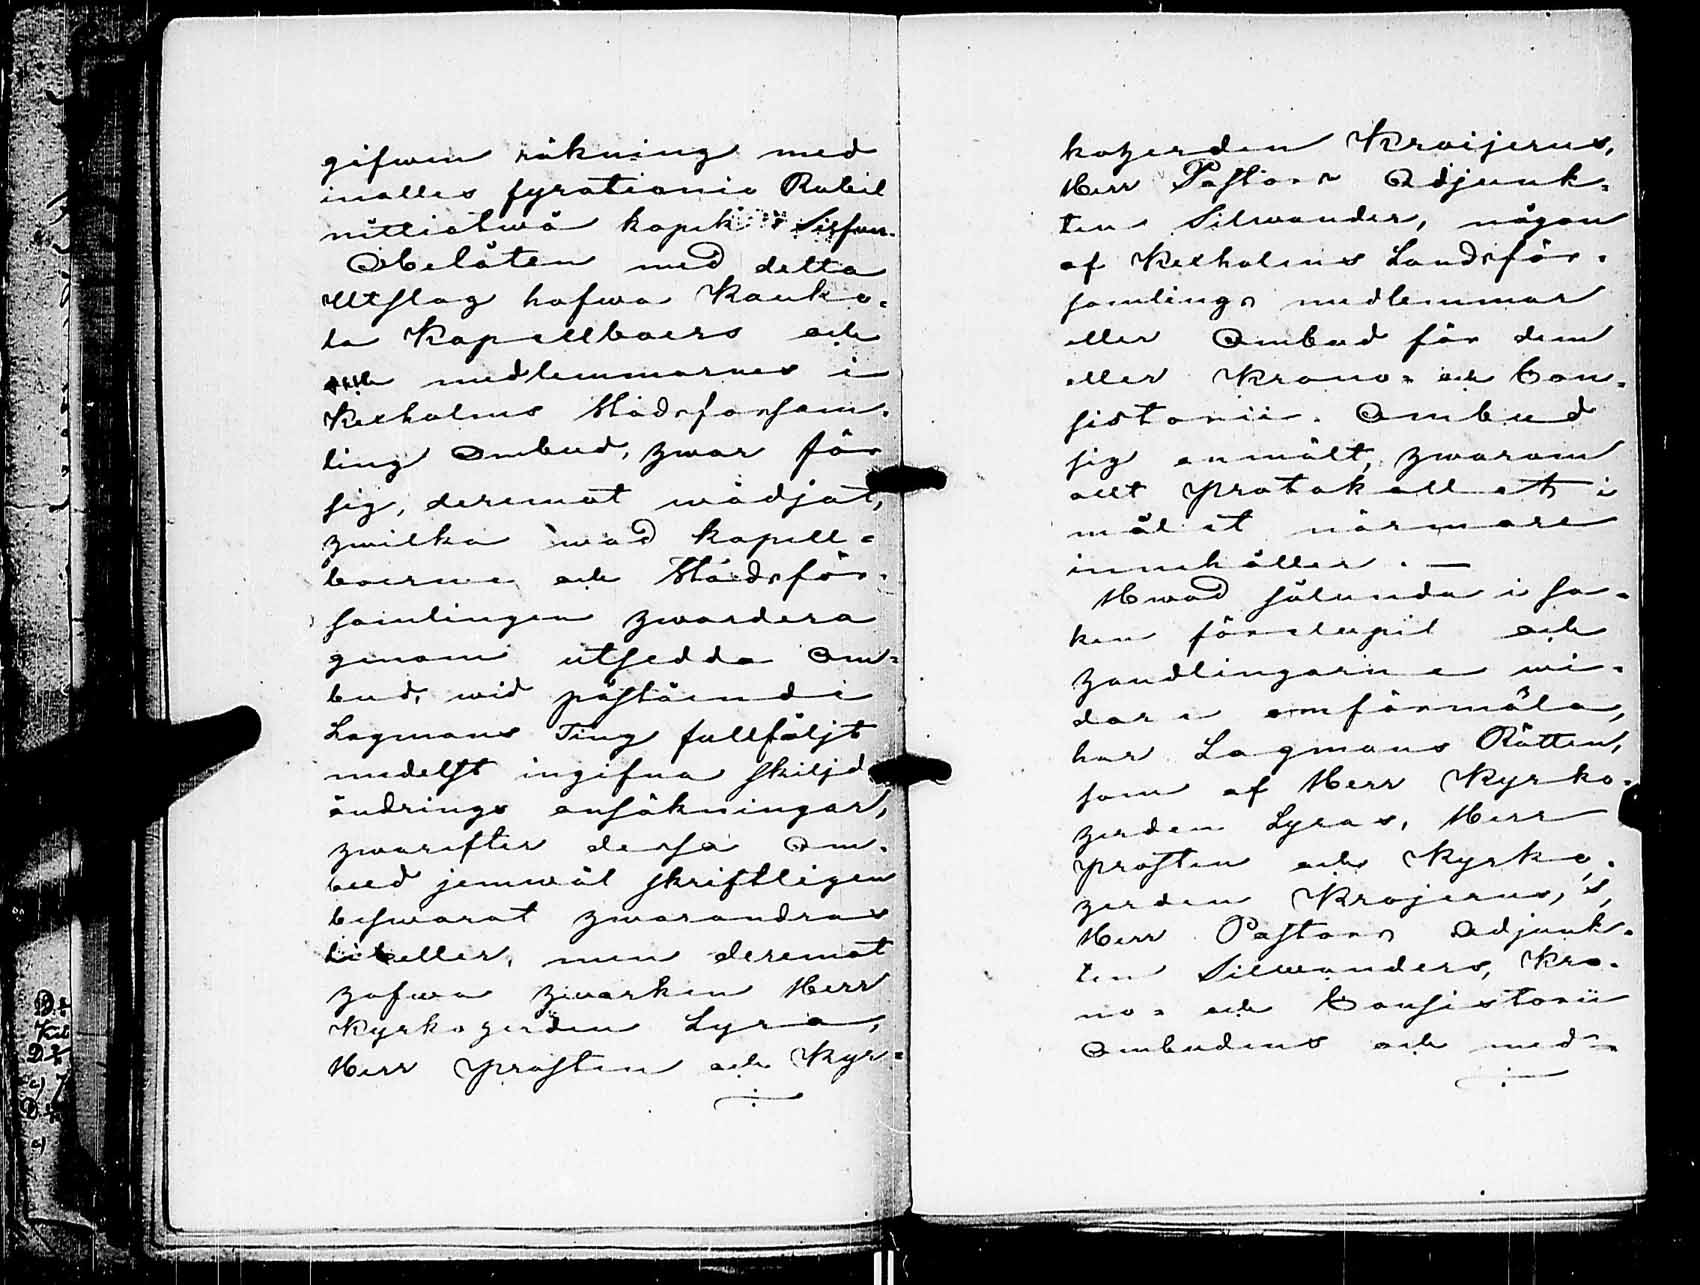 gifwen räkning med
inalles fyrationio Rubel
nittiotwå kopek Silfwer.
Obelåten med detta
Utslag hafwa Kauko-
la Kapellboers och
medlemmarnes i
Kexholms Stadsförsam-
ling Ombud, hwar för
sig, deremot wädjat,
hwilka wad kapell-
boerne och Stadsför-
samlingen hwardera
genom utsedda Om-
bud, wid påstående
Lagmans Ting fullföljt
medelst ingifna skilj.d
ändrings ansökningar,
hwarefter dessa Om-
bud jemwäl skriftligen
beswarat hwarandras
libeller, men deremot
hafwa hwarken Herr
Kyrkoherden Lyra,
Herr Prosten och Kyr-
koherden Kroijerus,
Herr Pastors Adjunk-
ten Silwander, någon
af Kexholms Landsför-
samlings medlemmar
eller Ombud för dem
eller Krono- och Con-
sistorii- Ombud
sig anmält, hwarom
allt Protokollet i
målet närmare
innehåller. —
Hwad sålunda i sa-
ken förelupit och
handlingarne wi-
dare omförmäla,
har Lagmans Rätten,
som af Herr Kyrko-
herden Lyras, Herr
Prosten och Kyrko-
herden Krojerus,s,
Herr Pastors Adjunk-
ten Silwanders, Kro-
no- och Consistorii
Ombudens och med-